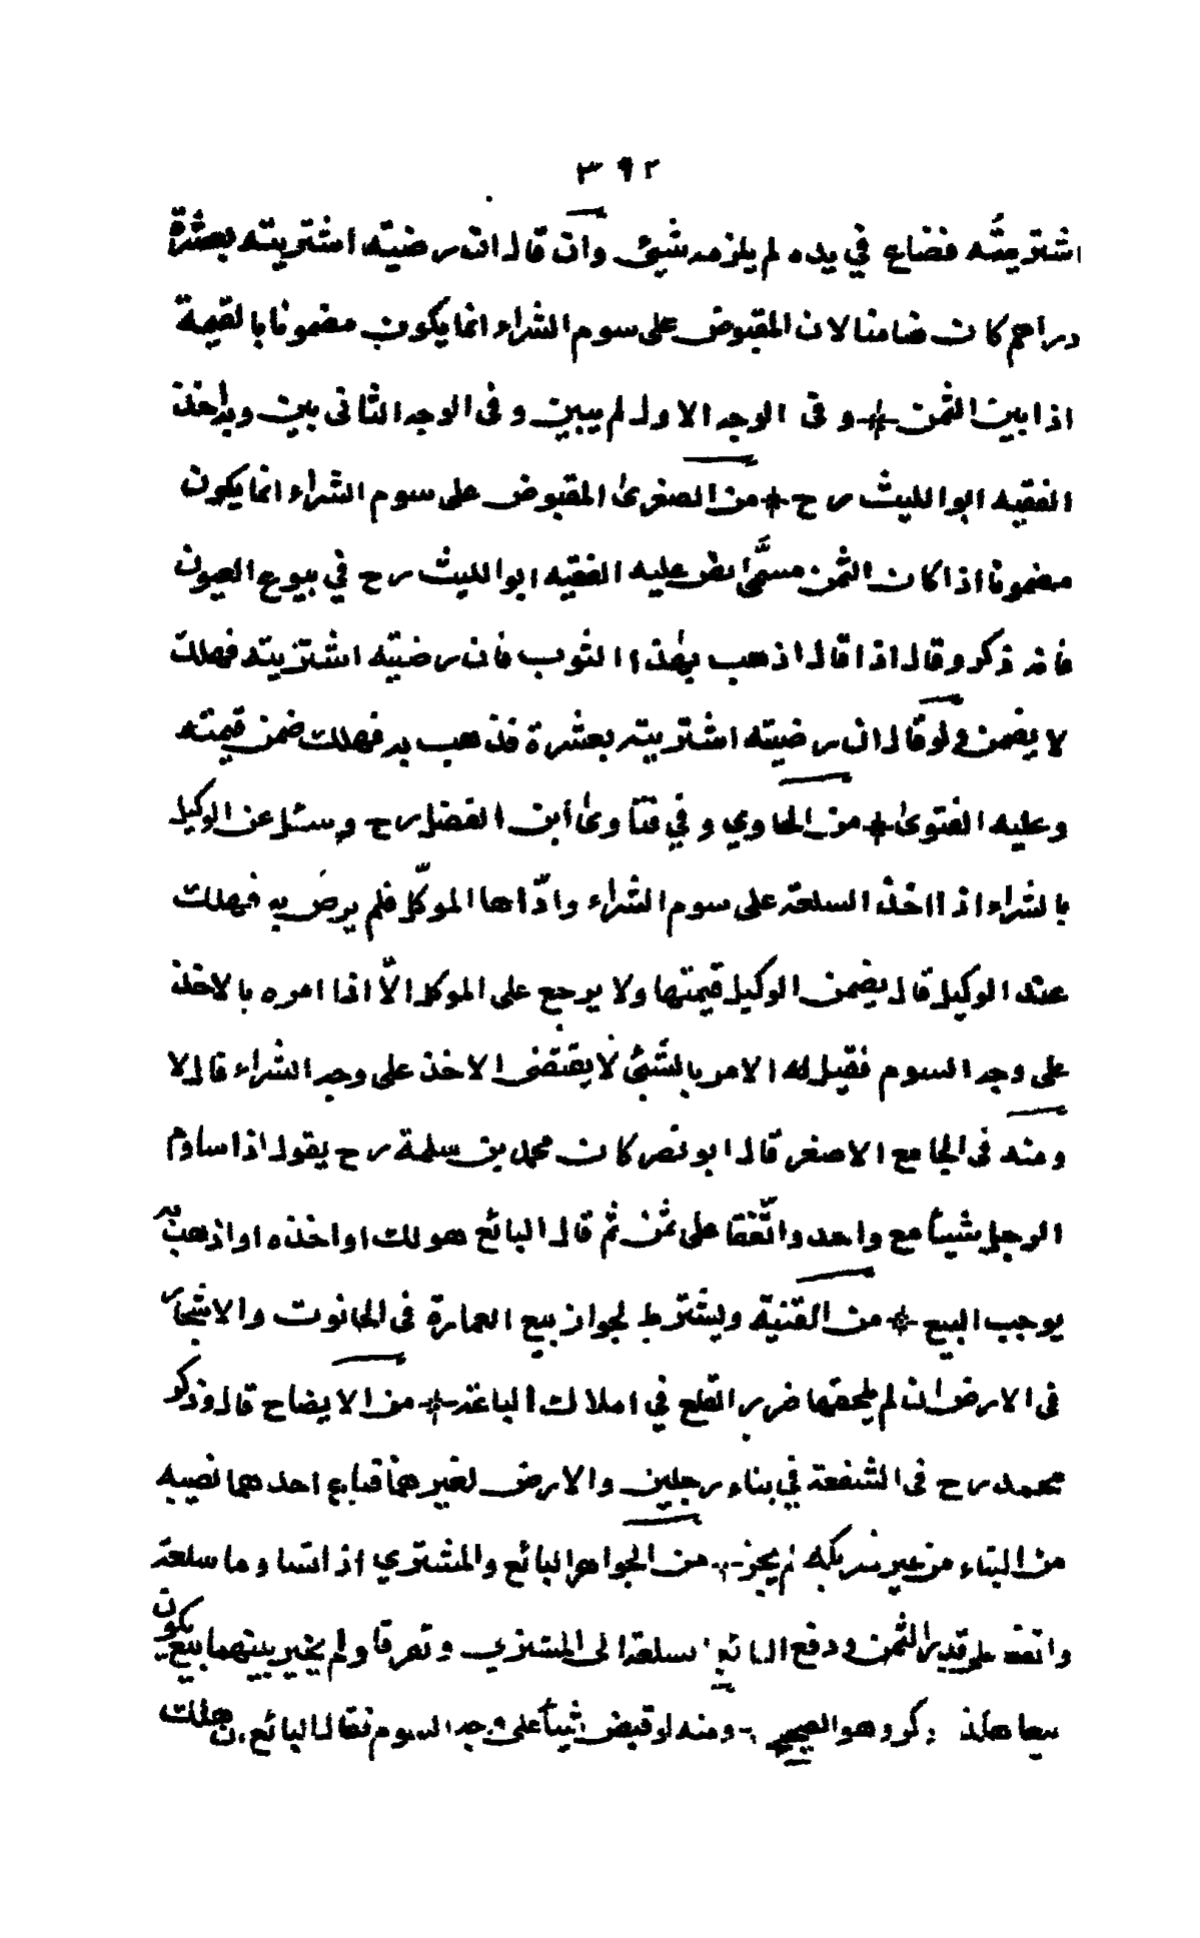 ٣٩٢
اشتريته فضاع في يده لم يلزمه شيئ وان قال ان رضيته اشتريته بعشرة
دراهم كان ضامنا لان المقبوض على سوم الشراء انما يكون مضمونا بالقيمة
اذا بين الثمن + و فى الوجه الاول لم يبين و فى الوجه الثانى بين وبه اخذ
الفقيه ابو الليث رح + من الصغرىٰ المقبوض على سوم الشراء انما يكون
مضمونا اذا كان الثمن مسمَّى نص عليه الفقيه ابو الليث رح في بيوع العيون
فانه ذكر وقال اذا قال اذهب بهٰذا الثوب فان رضيته اشتريته فهلك
لا يضمن ولو قال ان رضيته اشتريته بعشرة فذهب به فهلك ضمن قيمته
وعليه الفتوىٰ + من الحاوي و في فتاوىٰ أبن الفضل رح وسئل عن الوكيل
بالشراء اذا اخذ السلعة على سوم الشراء وادّاها الموكّل فلم يرضَ به فهلك
عند الوكيل قال يضمن الوكيل قيمتها ولا يرجع على الموكل الاّ اذا امره بالاخذ
على وجه السوم فقيل له الامر بالشيئ لا يقتضى الاخذ على وجه الشراء قال لا
ومنه فى الجامع الاصغر قال ابو نصر كان محمد بن سلمة رح يقول اذا ساوم
الرجل شيئاً مع واحد واتّفقا على ثمن ثم قال البائع هو لك او اخذه او اذهب به
يوجب البيع + من القنية ويشترط لجواز بيع العمارة فى الحانوت والاشجار
فى الارض ان لم يلحقها ضرر القلع في املاك الباعة + من الايضاح قال وذكر
محمد رح فى الشفعة في بناء رجلين والارض لغيرهما فباع احدهما نصيبه
من البناء من غير شريكه لم يجز + من الجواهر البائع والمشتري اذا تساوما سلعة
واتفقا على قدر الثمن ودفع البائع سلعة الى المشتري و تفرقا ولم يخير بينهما بيع يكون
بيعا هكذا ذكر وهو الصحيح + ومنه لو قبض شيئاً على وجه السوم فقال البائع ان هلك